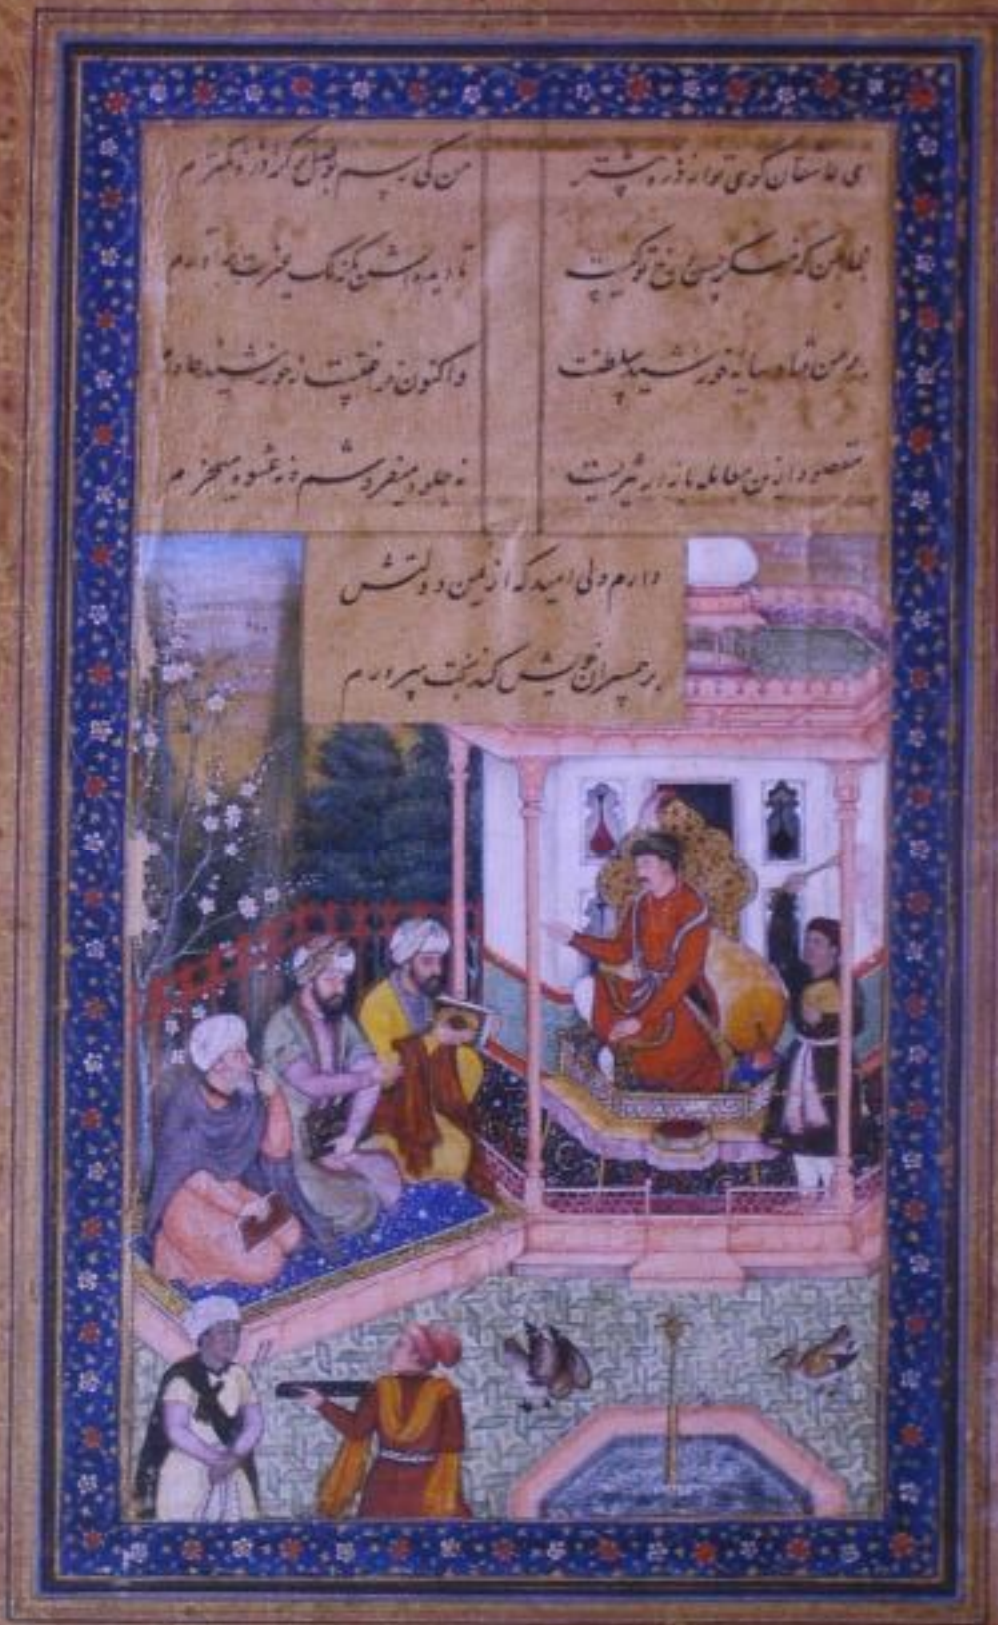 ای عاشقان کوی تو از ذره بیشتر من کی رسم بوصل تو کز ذره کمترم
بنما بمن که منکر حسن رخ تو کیست تا دیده اش بگزلک غیرت برآورم
بر من فتاد سایه خورشید سلطنت و اکنون فراغتست ز خورشید خاورم
مقصود ازین معامله بازار تیزیست نه جلوه میفروشم و نه عشوه میخرم
دارم ولی امید که از یمن دولتش
بر همسران خویش کند بخت سرورم